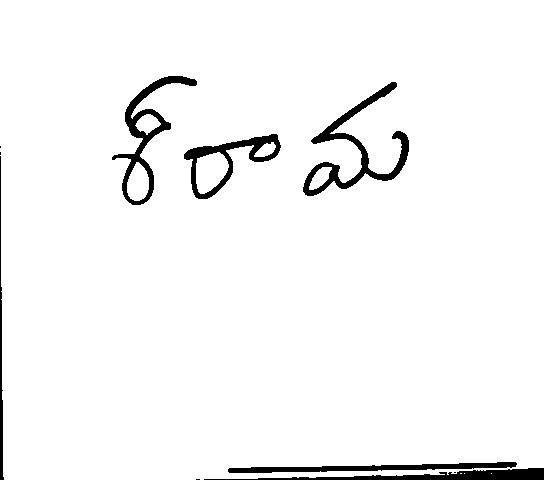 శ్రీరామ